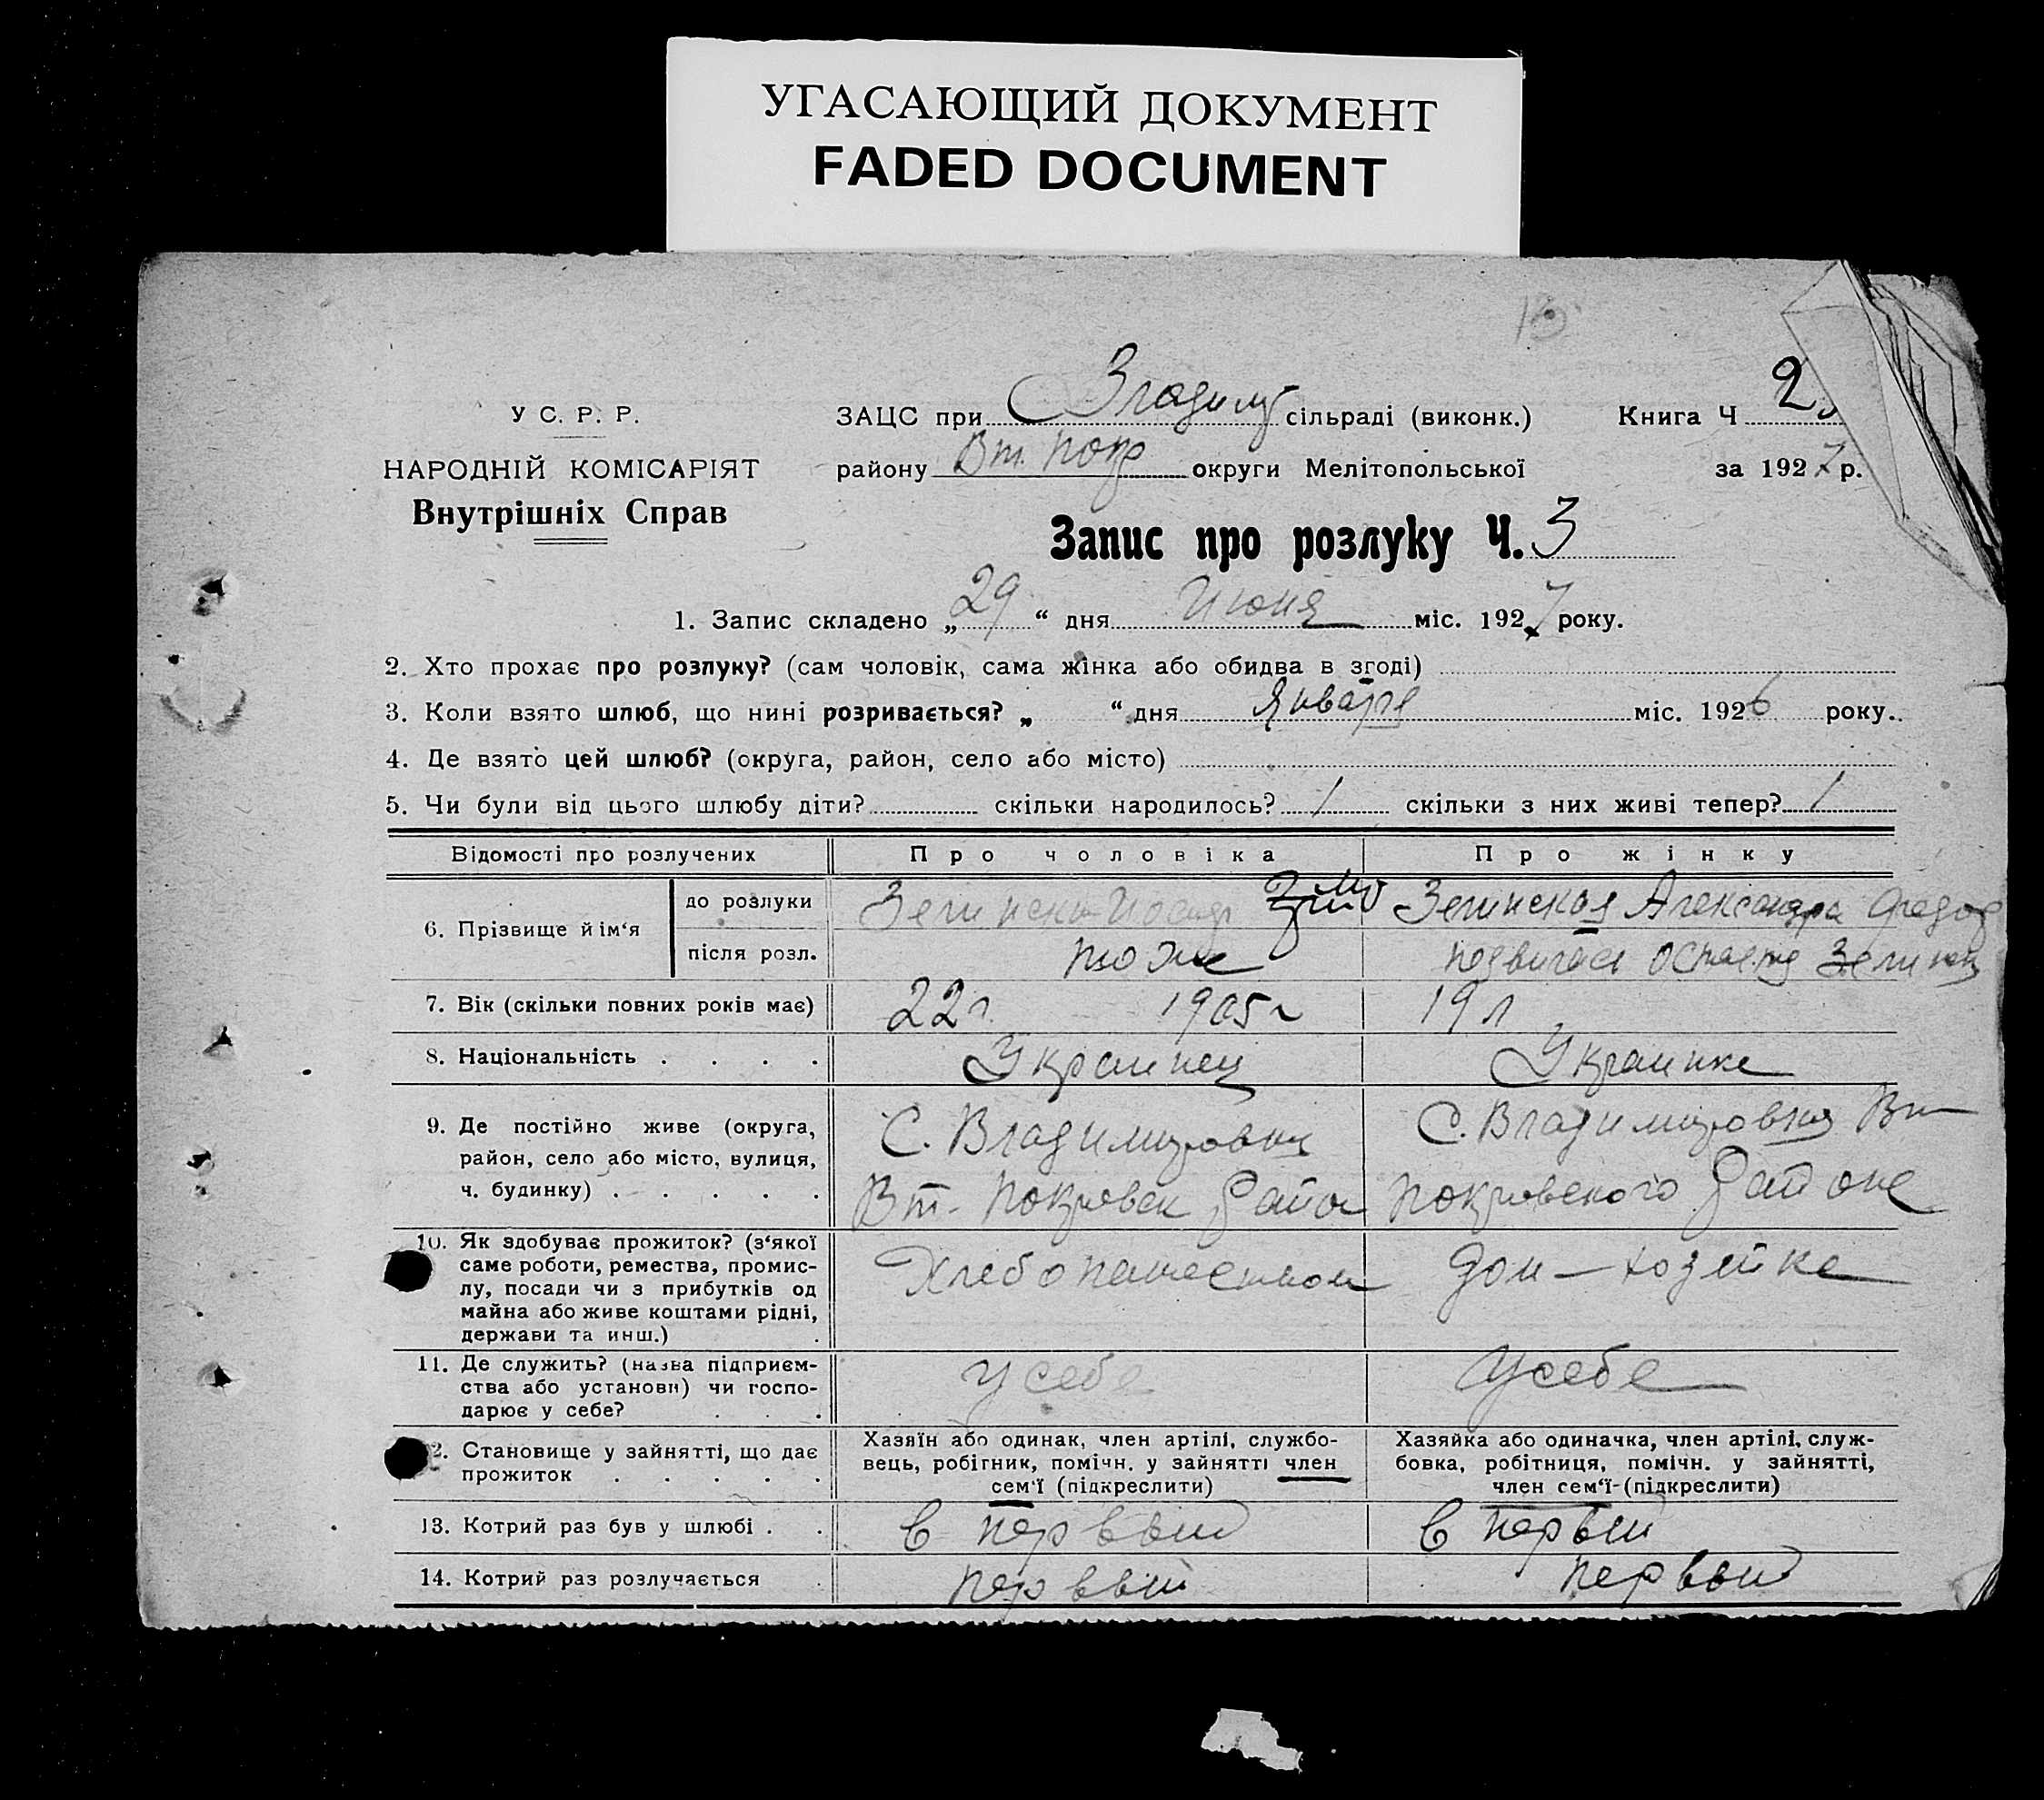 УГАСАЮЩИЙ ДОКУМЕНТ
FADED DOCUMENT
У С. Р. Р.
НАРОДНІЙ КОМІСАРІЯТ
Внутрішніх Справ
ЗАЦС при Владим сільраді (виконк.) Книга Ч 2
району Вт. Покр округи Мелітопольської за 1927 р.
Запис про розлуку Ч. 3
1. Запис складено „ 29 “ дня Июня міс. 1927 року.
2. Хто прохає про розлуку? (сам чоловік, сама жінка або обидва в згоді)
3. Коли взято шлюб, що нині розривається? „ “ дня Января міс. 1926 року.
4. Де взято цей шлюб? (округа, район, село або місто)
5. Чи були від цього шлюбу діти? скільки народилось? 1 скільки з них живі тепер? 1
Відомості про розлучених Про чоловіка Про жінку
6. Прізвище й ім‘я
до розлуки Зелинская Александра Федор
після розл. тоже остается
7. Вік (скільки повних років має) 22 г. 1905 г 19 л
8. Національність . . . . Украинец Украинка
9. Де постійно живе (округа, район, село або місто, вулиця, ч. будинку) . . . . .
С. Владимировка
Вт. Покровск Райо
С. Владимировка Вт
Покровского Района
10. Як здобуває прожиток? (з‘якої саме роботи, ремества, промислу, посади чи з прибутків од майна або живе коштами рідні, держави та инш.)
Хлебопашеством Дом — хозяйка
11. Де служить? (назва підприємства або установи) чи господарює у себе? . . .
у себе у себе
12. Становище у зайнятті, що дає прожиток . . . . .
Хазяїн або одинак, член артілі, службовець, робітник, помічн. у зайнятті член сем‘ї (підкреслити)
Хазяйка або одиначка, член артілі, службовка, робітниця, помічн. у зайнятті, член сем‘ї-(підкреслити)
13. Котрий раз був у шлюбі . . в первый в первый
14. Котрий раз розлучається . первый первый